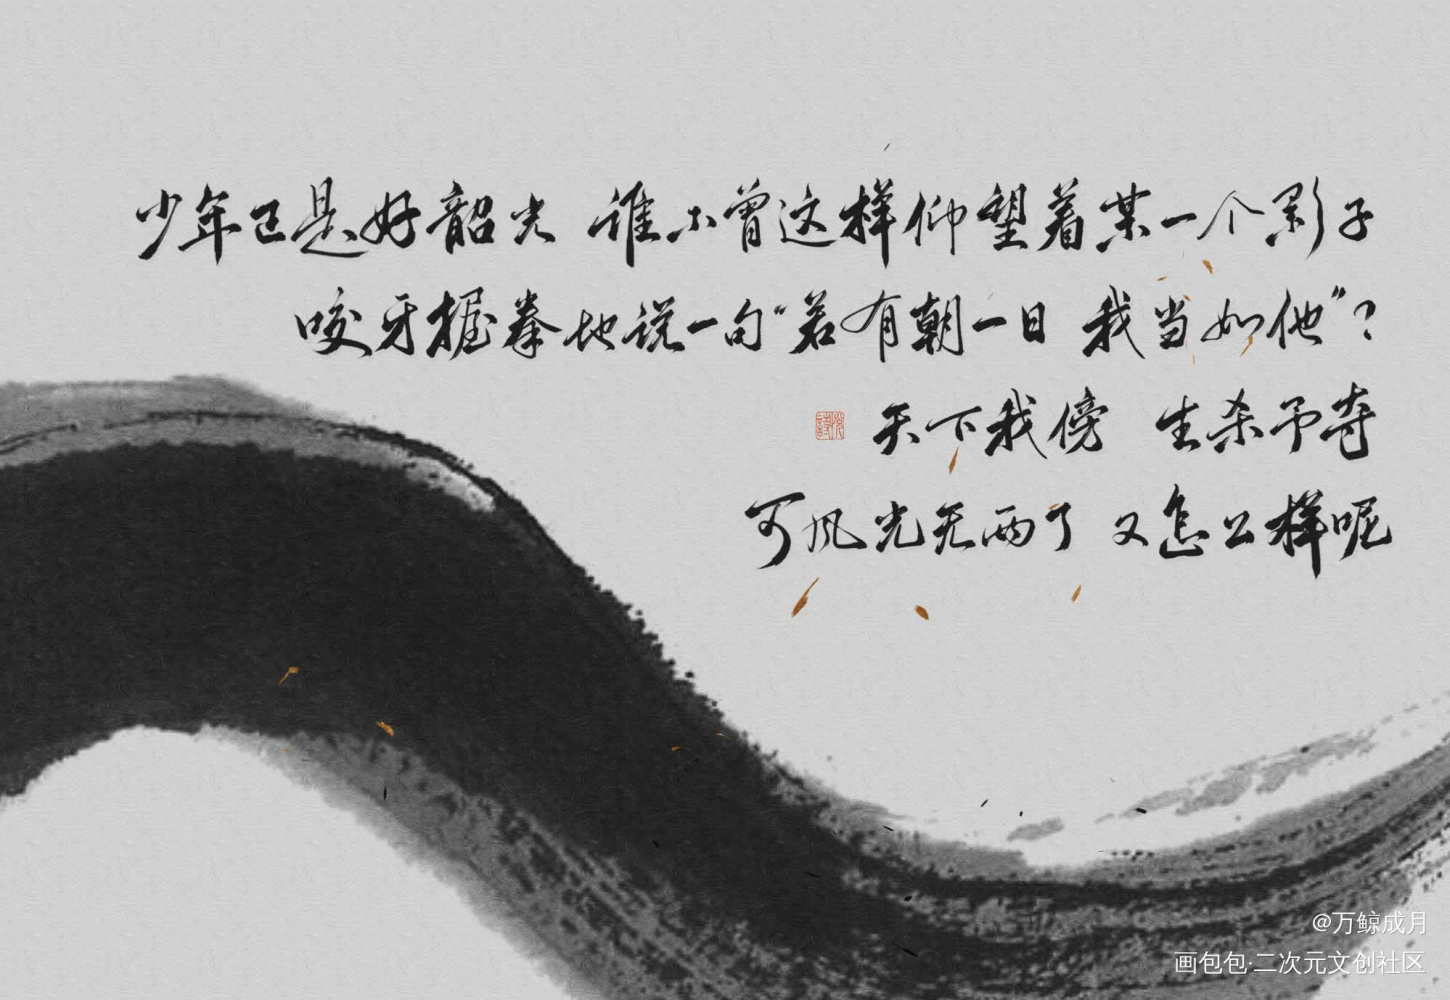 少年已是好韶光 谁不曾这样仰望着某一个影子
咬牙握拳地说一句“若有朝一日 我当如他”?
天下我傍 生杀予夺
可风光无两了 又怎么样呢
@万鲸成月
画包包·二次元文创社区